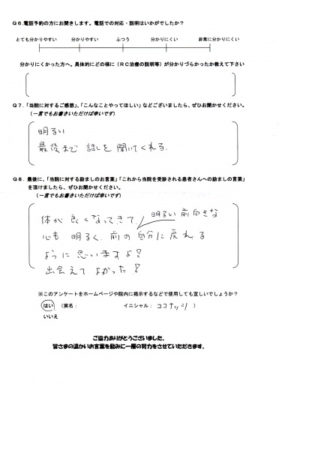 Q6.電話予約の方にお聞きします。電話での対応・説明はいかがでしたか？
とても分かりやすい 分かりやすい ふつう 分かりにくい 非常に分かりにくい
分かりにくかった方へ、具体的にどの様に（RC治療の説明等）が分かりづらかったか教えて下さい
Q7.「当院に対するご感想」、「こんなことやってほしい」などございましたら、ぜひお聞かせください。
（一言でもお書きいただければ幸いです）
明るい
最後まで 話しを 聞いてくれる
Q8.最後に、「当院に対する励ましのお言葉」「これから当院を受診される患者さんへの励ましの言葉」
を頂けましたら、ぜひお聞かせください。
（一言でもお書きいただければ幸いです）
体が 良くなってきて 明るい 前向きな
心も 明るく、前の 自分に 戻れる
ように 思いますよ？
出会えて よかった！
※このアンケートをホームページや院内に掲示するなどで使用しても宜しいでしょうか？
はい （匿名： イニシャル： ココナッツ ）
いいえ
ご協力ありがとうございました。
皆さまの温かいお言葉を励みに一層の努力をさせていただきます。